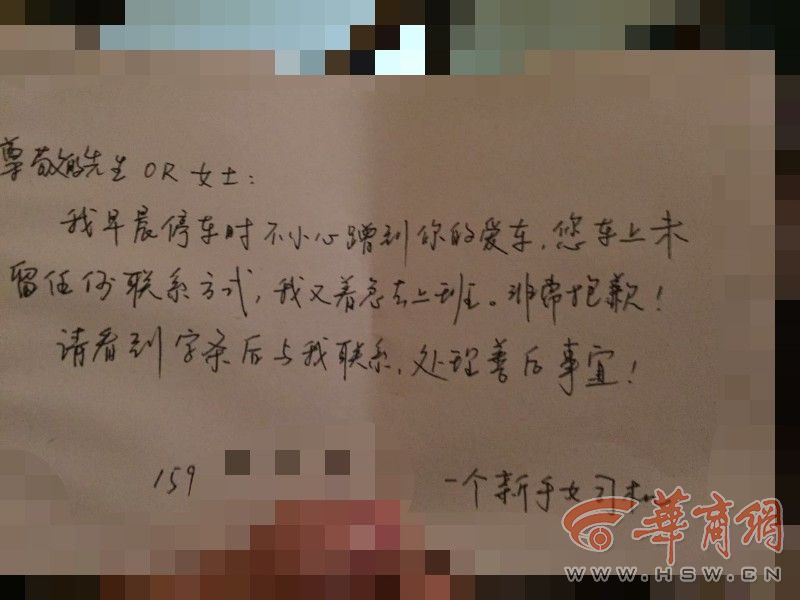 尊敬的先生 OR 女士:
我早晨停车时不小心蹭到你的爱车,您车上未
留任何联系方式,我又着急去上班。非常抱歉!
请看到字条后与我联系,处理善后事宜!
159
一个新手女司机
華商網
WWW.HSW.CN